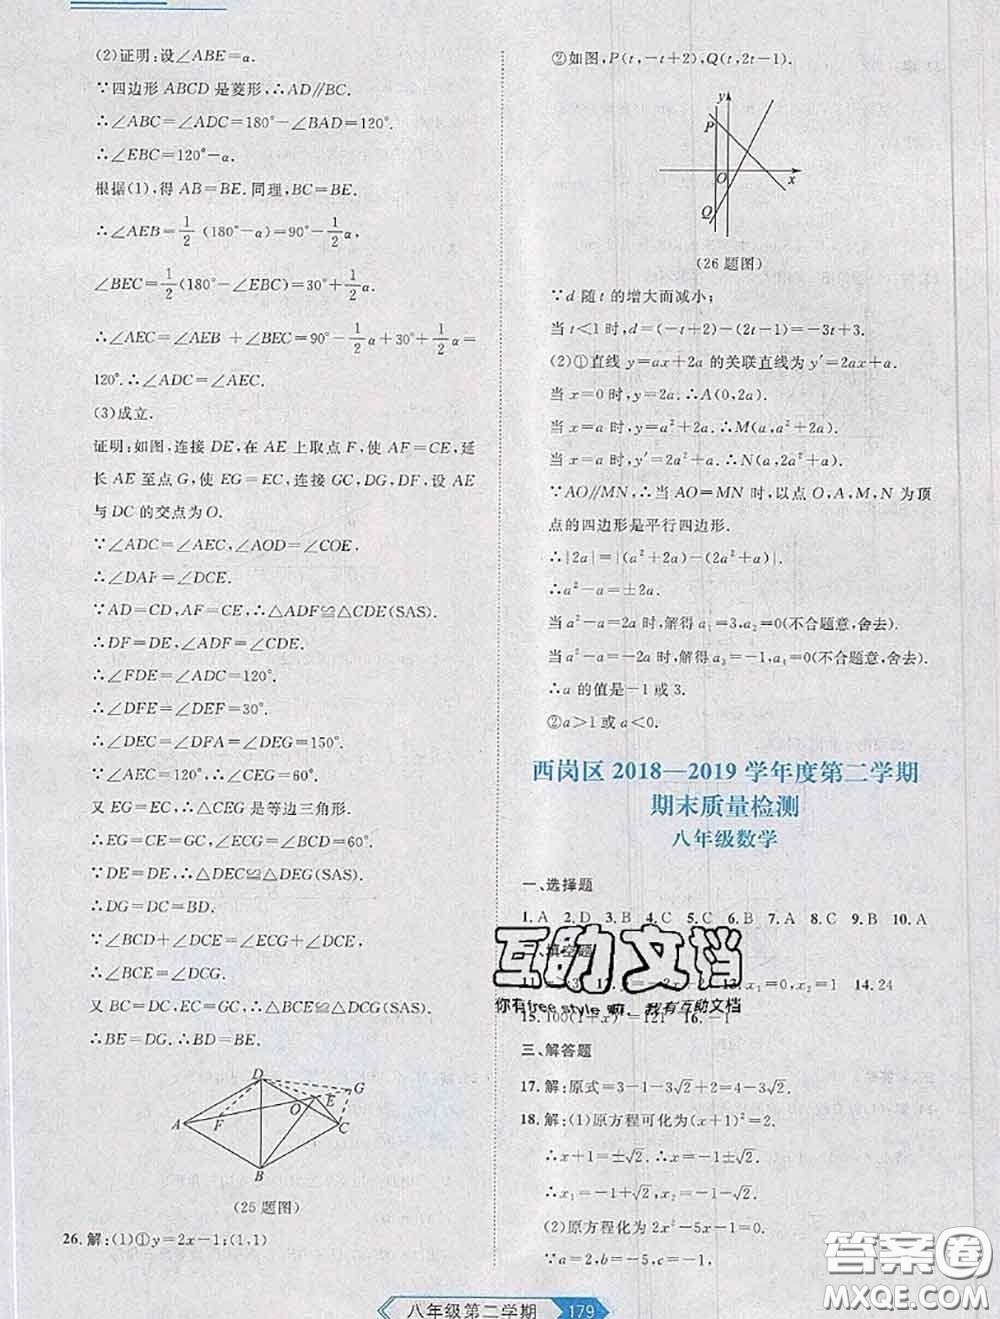 (2)证明:设∠ABE=α.
∵四边形 ABCD 是菱形,∴AD∥BC.
∴∠ABC=∠ADC=180°−∠BAD=120°.
∴∠EBC=120°−α.
根据(1),得 AB=BE.同理,BC=BE.
∴∠AEB=1/2(180°−α)=90°−1/2α,
∠BEC=1/2(180°−∠EBC)=30°+1/2α.
∴∠AEC=∠AEB+∠BEC=90°−1/2α+30°+1/2α=
120°.∴∠ADC=∠AEC.
(3)成立.
证明:如图,连接 DE,在 AE 上取点 F,使 AF=CE,延
长 AE 至点 G,使 EG=EC,连接 GC,DG,DF,设 AE
与 DC 的交点为 O.
∵∠ADC=∠AEC,∠AOD=∠COE,
∴∠DAF=∠DCE.
∵AD=CD,AF=CE,∴△ADF≌△CDE(SAS).
∴DF=DE,∠ADF=∠CDE.
∴∠FDE=∠ADC=120°.
∴∠DFE=∠DEF=30°.
∴∠DEC=∠DFA=∠DEG=150°.
∵∠AEC=120°,∴∠CEG=60°.
又 EG=EC,∴△CEG 是等边三角形.
∴EG=CE=GC,∠ECG=∠BCD=60°.
∵DE=DE,∴△DEC≌△DEG(SAS).
∴DG=DC=BD.
∵∠BCD+∠DCE=∠ECG+∠DCE,
∴∠BCE=∠DCG.
又 BC=DC,EC=GC,∴△BCE≌△DCG(SAS).
∴BE=DG.∴BE=BD.
D
G
E
O
A
F
C
B
(25 题图)
26. 解:(1)①y=2x−1;(1,1)
②如图,P(t,−t+2),Q(t,2t−1).
y
P
O
x
Q
(26 题图)
∵d 随 t 的增大而减小;
当 t<1 时,d=(−t+2)−(2t−1)=−3t+3.
(2)①直线 y=ax+2a 的关联直线为 y′=2ax+a.
当 x=0 时,y=2a.∴A(0,2a).
当 x=a 时,y=a²+2a.∴M(a,a²+2a).
当 x=a 时,y=2a²+a.∴N(a,2a²+a).
∵AO∥MN,∴当 AO=MN 时,以点 O,A,M,N 为顶
点的四边形是平行四边形.
∴|2a|=|(a²+2a)−(2a²+a)|.
∴a²−a=±2a.
当 a²−a=2a 时,解得 a₁=3,a₂=0(不合题意,舍去).
当 a²−a=−2a 时,解得 a₃=−1,a₄=0(不合题意,舍去).
∴a 的值是−1 或 3.
②a>1 或 a<0.
西岗区 2018—2019 学年度第二学期
期末质量检测
八年级数学
一、选择题
1. A 2. D 3. B 4. C 5. C 6. B 7. A 8. C 9. B 10. A
填空题
13. x₁=0,x₂=1 14. 24
15. 100(1+x)²=121 16. −1
三、解答题
17. 解:原式=3−1−3√2+√2=2−2√2.
18. 解:(1)原方程可化为(x+1)²=2.
∴x+1=±√2.∴x=−1±√2.
∴x₁=−1+√2,x₂=−1−√2.
(2)原方程化为 2x²−5x−1=0.
∵a=2,b=−5,c=−1,
互助文档
你有free style 嘛,我有互助文档
八年级第二学期 179
答案圈
MXQE.COM